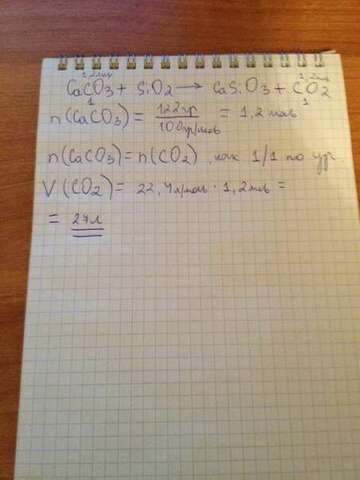 1,2моль 1,2моль
CaCO3 + SiO2 → CaSiO3 + CO2
1 1
n(CaCO3) = 122гр / 101гр/моль = 1,2 моль
n(CaCO3) = n(CO2), как 1/1 по ур.
V(CO2) = 22,4л/моль · 1,2моль =
= 27л